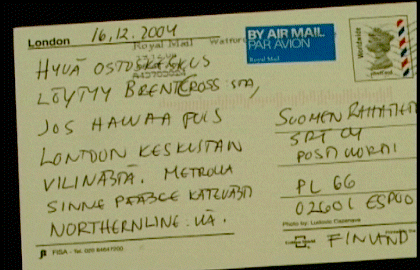 London 16.12.2004
Royal Mail
BY AIR MAIL
PAR AVION
Royal Mail
Worldwide
HYVÄ OSTOSKESKUS
LÖYTYY BRENTCROSS:STA,
JOS HALUAA POIS
LONTOON KESKUSTAN
VILINÄSTÄ. METROLLA
SINNE PÄÄSEE KÄTEVÄSTI
NORTHERNLINE:LLÄ.
SUOMEN
OY
PL 66
02601 ESPOO
FINLAND
Photo by: Ludovic
FISA - Tel.